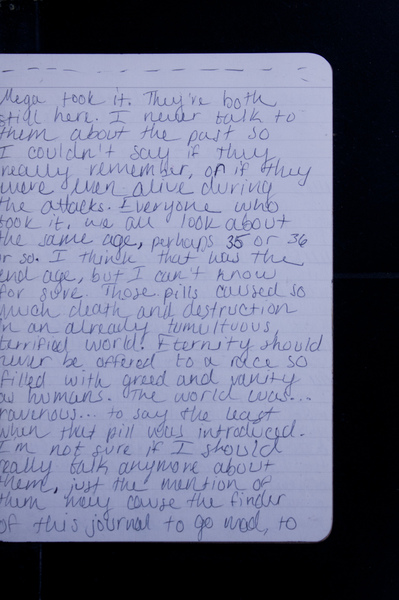 Mega took it. They're both
still here. I never talk to
them about the past so
I couldn't say if they
really remember, or if they
were even alive during
the attacks. Everyone who
took it, we all look about
the same age, perhaps 35 or 36
or so. I think that was the
end age, but I can't know
for sure. Those pills caused so
much death and destruction
in an already tumultuous,
terrified world. Eternity should
never be offered to a race so
filled with greed and vanity
as humans. The world was...
ravenous... to say the least
when that pill was introduced.
I'm not sure if I should
really talk anymore about
them, just the mention of
them may cause the finder
of this journal to go mad, to